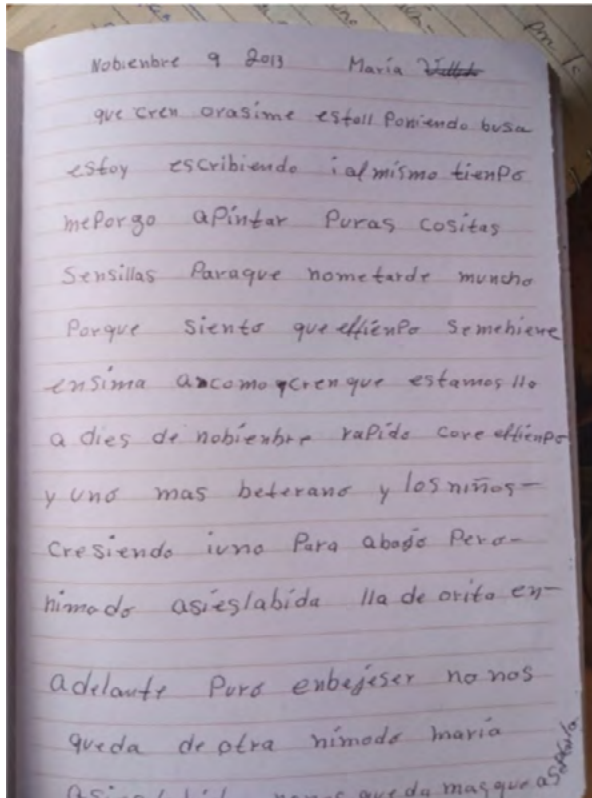 Nobienbre 9 2013 María
que cren orasime estoll Poniendo busa
estoy escribiendo ial mismo tienpo
mePorgo aPintar Puras cositas
Sensillas Paraque nometarde muncho
Porque siento que eltienPo Semehiene
ensima como cren que estamos llo
a dies de nobienbre raPido core eltienpo
y uno mas beterano y los niños-
Cresiendo iuno Para abajo Pero-
nimodo asieslabida lla de orita en-
adelante Puro enbejeser no nos
queda de otra nimodo maria
queda masque